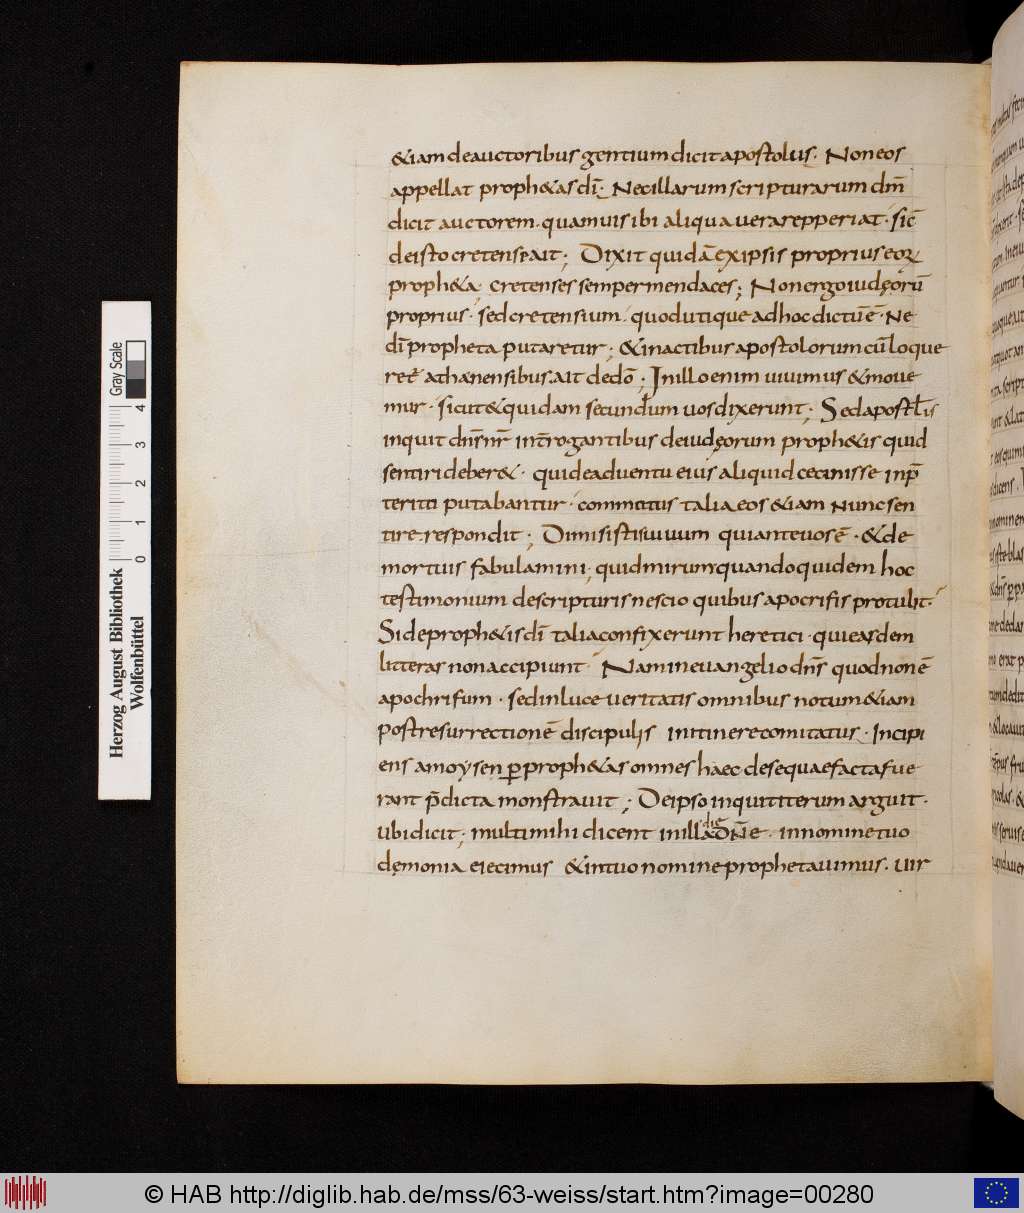 &iam de auctoribus gentium dicit apostolus· Non eos
appellat proph&as dī· Nec illarum scripturarum dm̄
dicit auctorem· quamuis ibi aliqua uera repperiat· sic̄
de isto cretense ait; Dixit quidā exipsis proprius eoꝝ
proph&a· cretenses semper mendaces; Non ergo iudęorū
proprius· sed cretensium· quod utique ad hoc dictū ē· Ne
dī propheta putaretur; &in actibus apostolorum cū loque
ret̄ athanensibus ait de dō; In illo enim uiuimus &moue
mur· sicut &quidam secundum uos dixerunt; Sed apostl̄is
inquit dn̄s nr̄ int̄rogantibus de iudęorum proph&is quid
sentiri deber&· qui de aduentu eius aliquid cecinisse in p̄
teritū putabantur· commotus talia eos &iam nunc sen
tire respondit; Dimisistis uiuum qui ante uos ē· &de
mortuis fabulamini; quid mirum quando quidem hoc
testimonium de scripturis nescio quibus apocrifis protulit·
Si de proph&is dī talia confixerunt heretici· qui easdem
litteras non accipiunt· Nam in euangelio dn̄s quod non ē
apochrifum· sed in luce ueritatis omnibus notum &iam
post resurrectionē discipulis in itinere comitatus· Incipi
ens a moysen ꝑ proph&as omnes haec de se quae facta fue
rant p̄dicta monstrauit; De ipso inquit iterum arguit·
ubi dicit; multi mihi dicent in illa die Dn̄e· in nomine tuo
dęmonia eiecimus &in tuo nomine prophetauimus· uir
Herzog August Bibliothek
Wolfenbüttel
Gray Scale
0 1 2 3 4
© HAB http://diglib.hab.de/mss/63-weiss/start.htm?image=00280